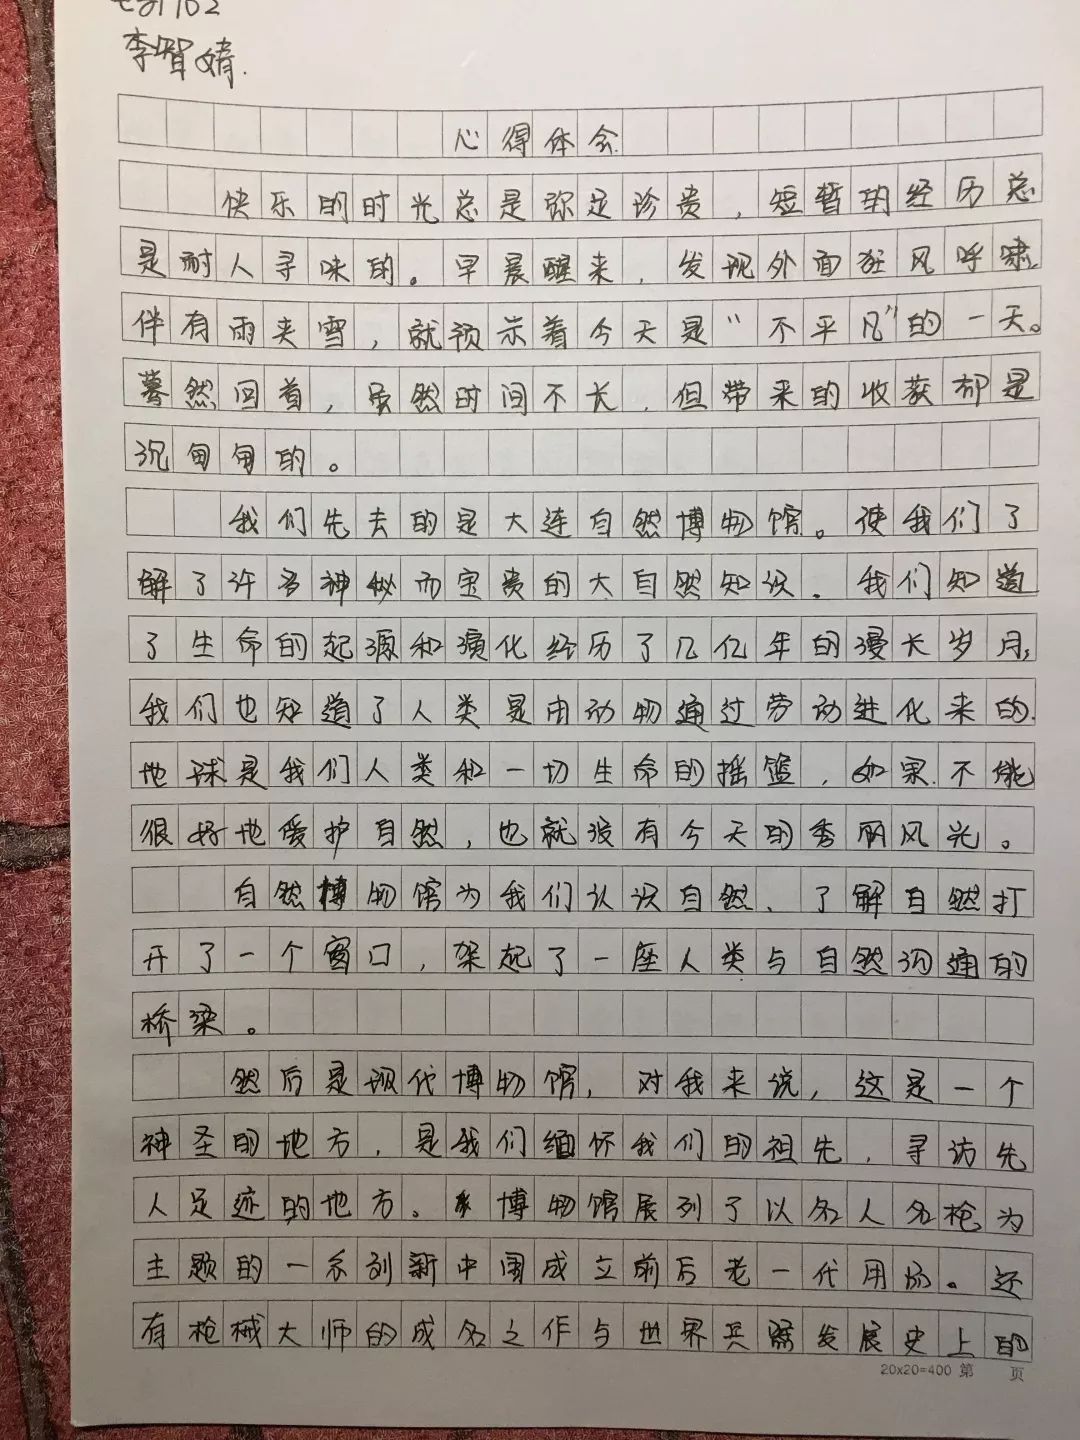 1702
李智婧.
心得体会
快乐的时光总是弥足珍贵，短暂的经历总
是耐人寻味的。早晨醒来，发现外面狂风呼啸，
伴有雨夹雪，就预示着今天是“不平凡”的一天。
蓦然回首，虽然时间不长，但带来的收获却是
沉甸甸的。
我们先去的是大连自然博物馆。使我们了
解了许多神秘而宝贵的大自然知识．我们知道
了生命的起源和演化经历了几亿年的漫长岁月，
我们也知道了人类是由动物通过劳动进化来的．
地球是我们人类和一切生命的摇篮，如果不能
很好地爱护自然，也就没有今天的秀丽风光。
自然博物馆为我们认识自然、了解自然打
开了一个窗口，架起了一座人类与自然沟通的
桥梁。
然后是现代博物馆，对我来说，这是一个
神圣的地方，是我们缅怀我们的祖先，寻访先
人足迹的地方。博物馆展列了以名人名枪为
主题的一系列新中国成立前后老一代用枪。还
有枪械大师的成名之作与世界兵器发展史上的
20x20=400 第 页